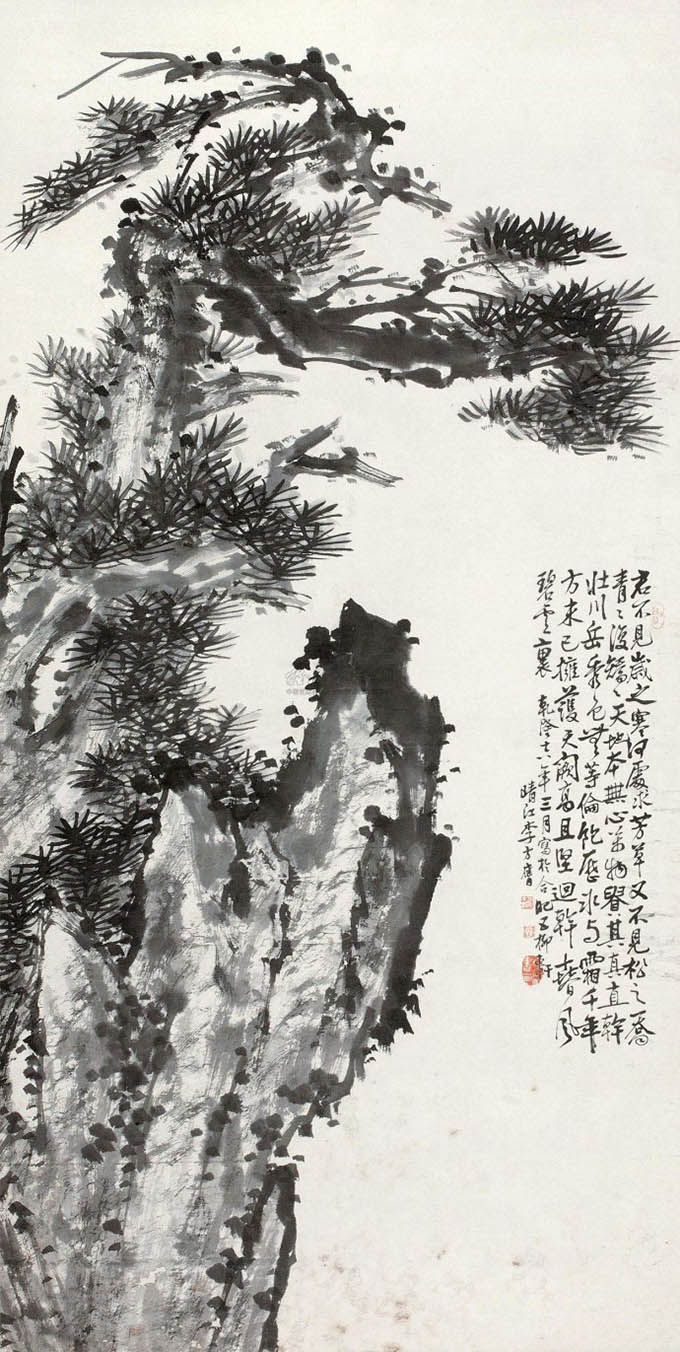 君不见岁之寒何处求芳草又不见松之乔
青々復矯々天地本無心萬物貴其真直幹
壮川岳秀色無等倫飽歷冰与霜千年
方未已擁護天闕高且堅迴幹春風
碧雲裏
乾隆十八年三月寫於合肥五柳軒
晴江李方膺